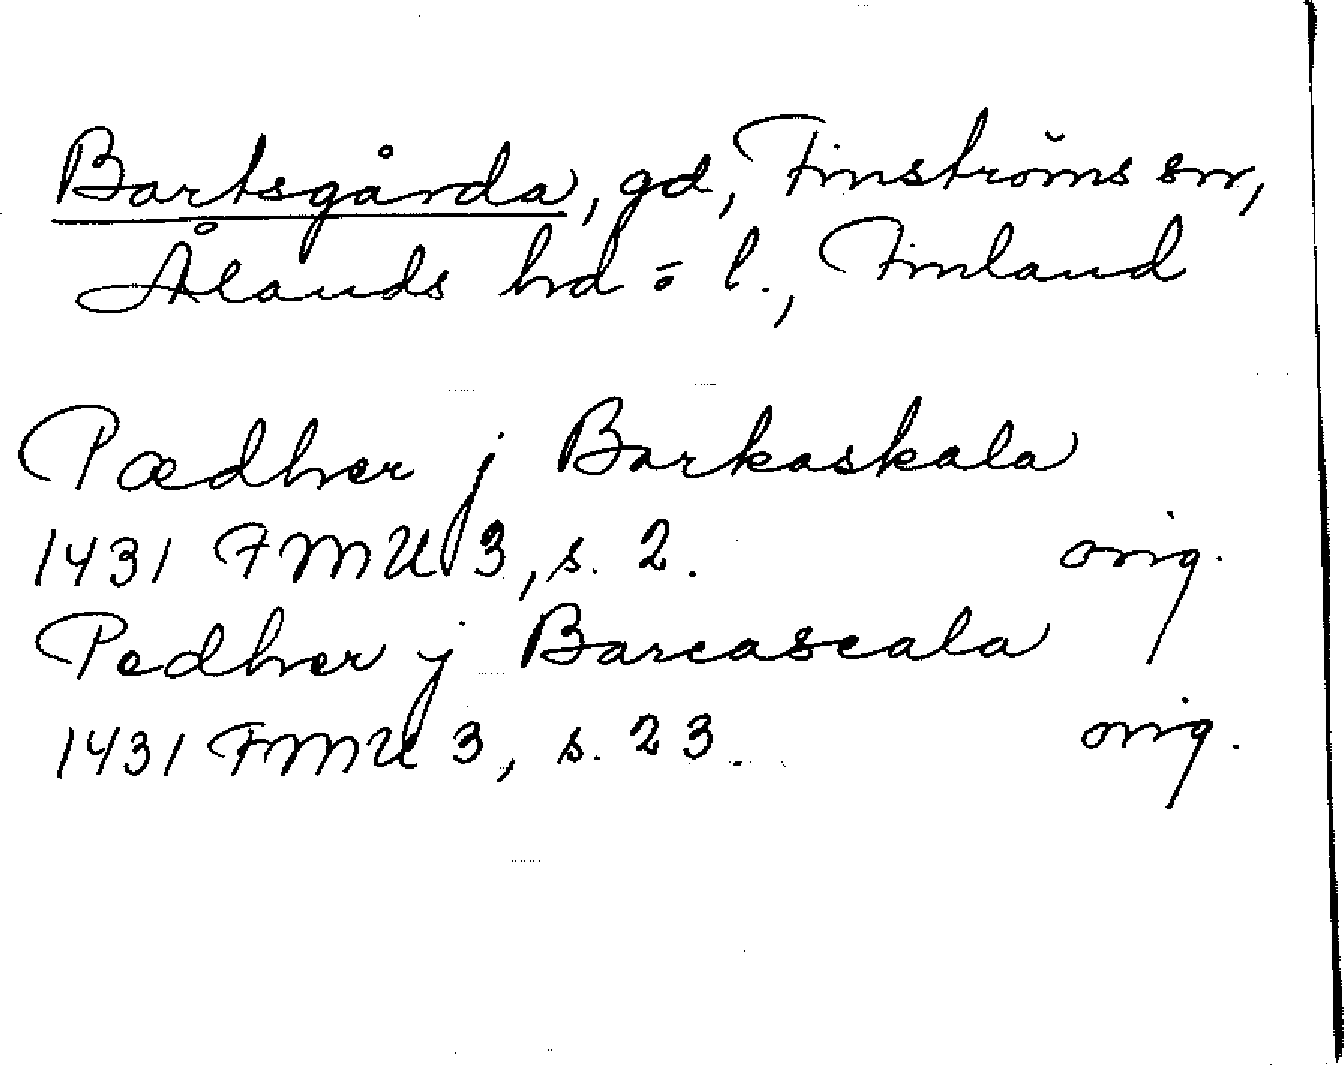 Bartsgårda, gd, Finströms sn,
Ålands hd o l., Finland
Pædher j Barkaskala
1431 FMU 3, s. 2. orig.
Pedher j Barcascala
1431 FMU 3, s. 23. orig.